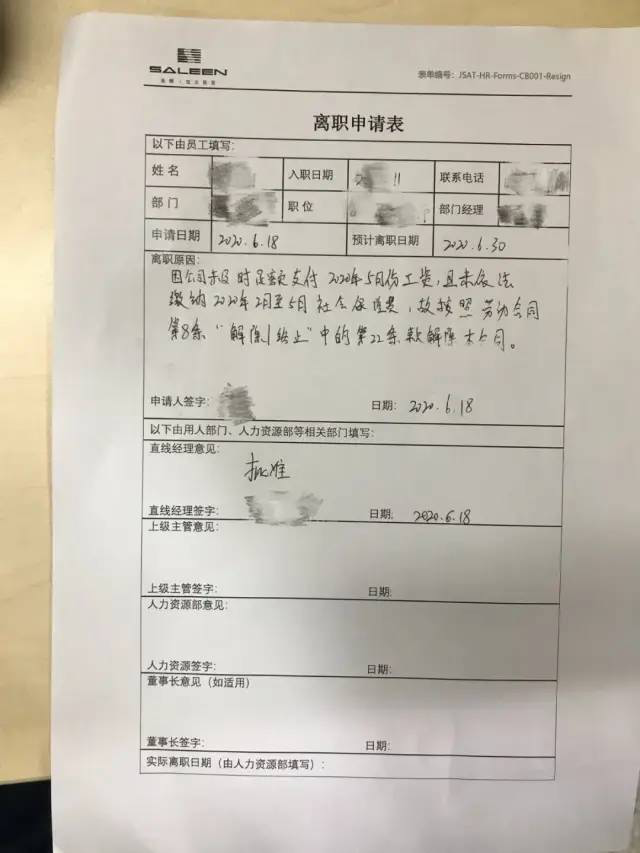 SALEEN
表单编号：JSAT-HR-Forms-CB001-Resign
离职申请表
以下由员工填写：
姓 名 入职日期 11 联系电话
部 门 职 位 部门经理
申请日期 2020.6.18 预计离职日期 2020.6.30
离职原因：
因公司未及时足额支付2020年5月份工资，且未依法
缴纳2020年2月至5月社会保险费，故按照劳动合同
第8条“解除/终止”中的第22条款解除本合同。
申请人签字： 日期： 2020.6.18
以下由用人部门、人力资源部等相关部门填写：
直线经理意见：
批准
直线经理签字： 日期： 2020.6.18
上级主管意见：
上级主管签字： 日期：
人力资源部意见：
人力资源签字： 日期：
董事长意见（如适用）
董事长签字： 日期：
实际离职日期（由人力资源部填写）：